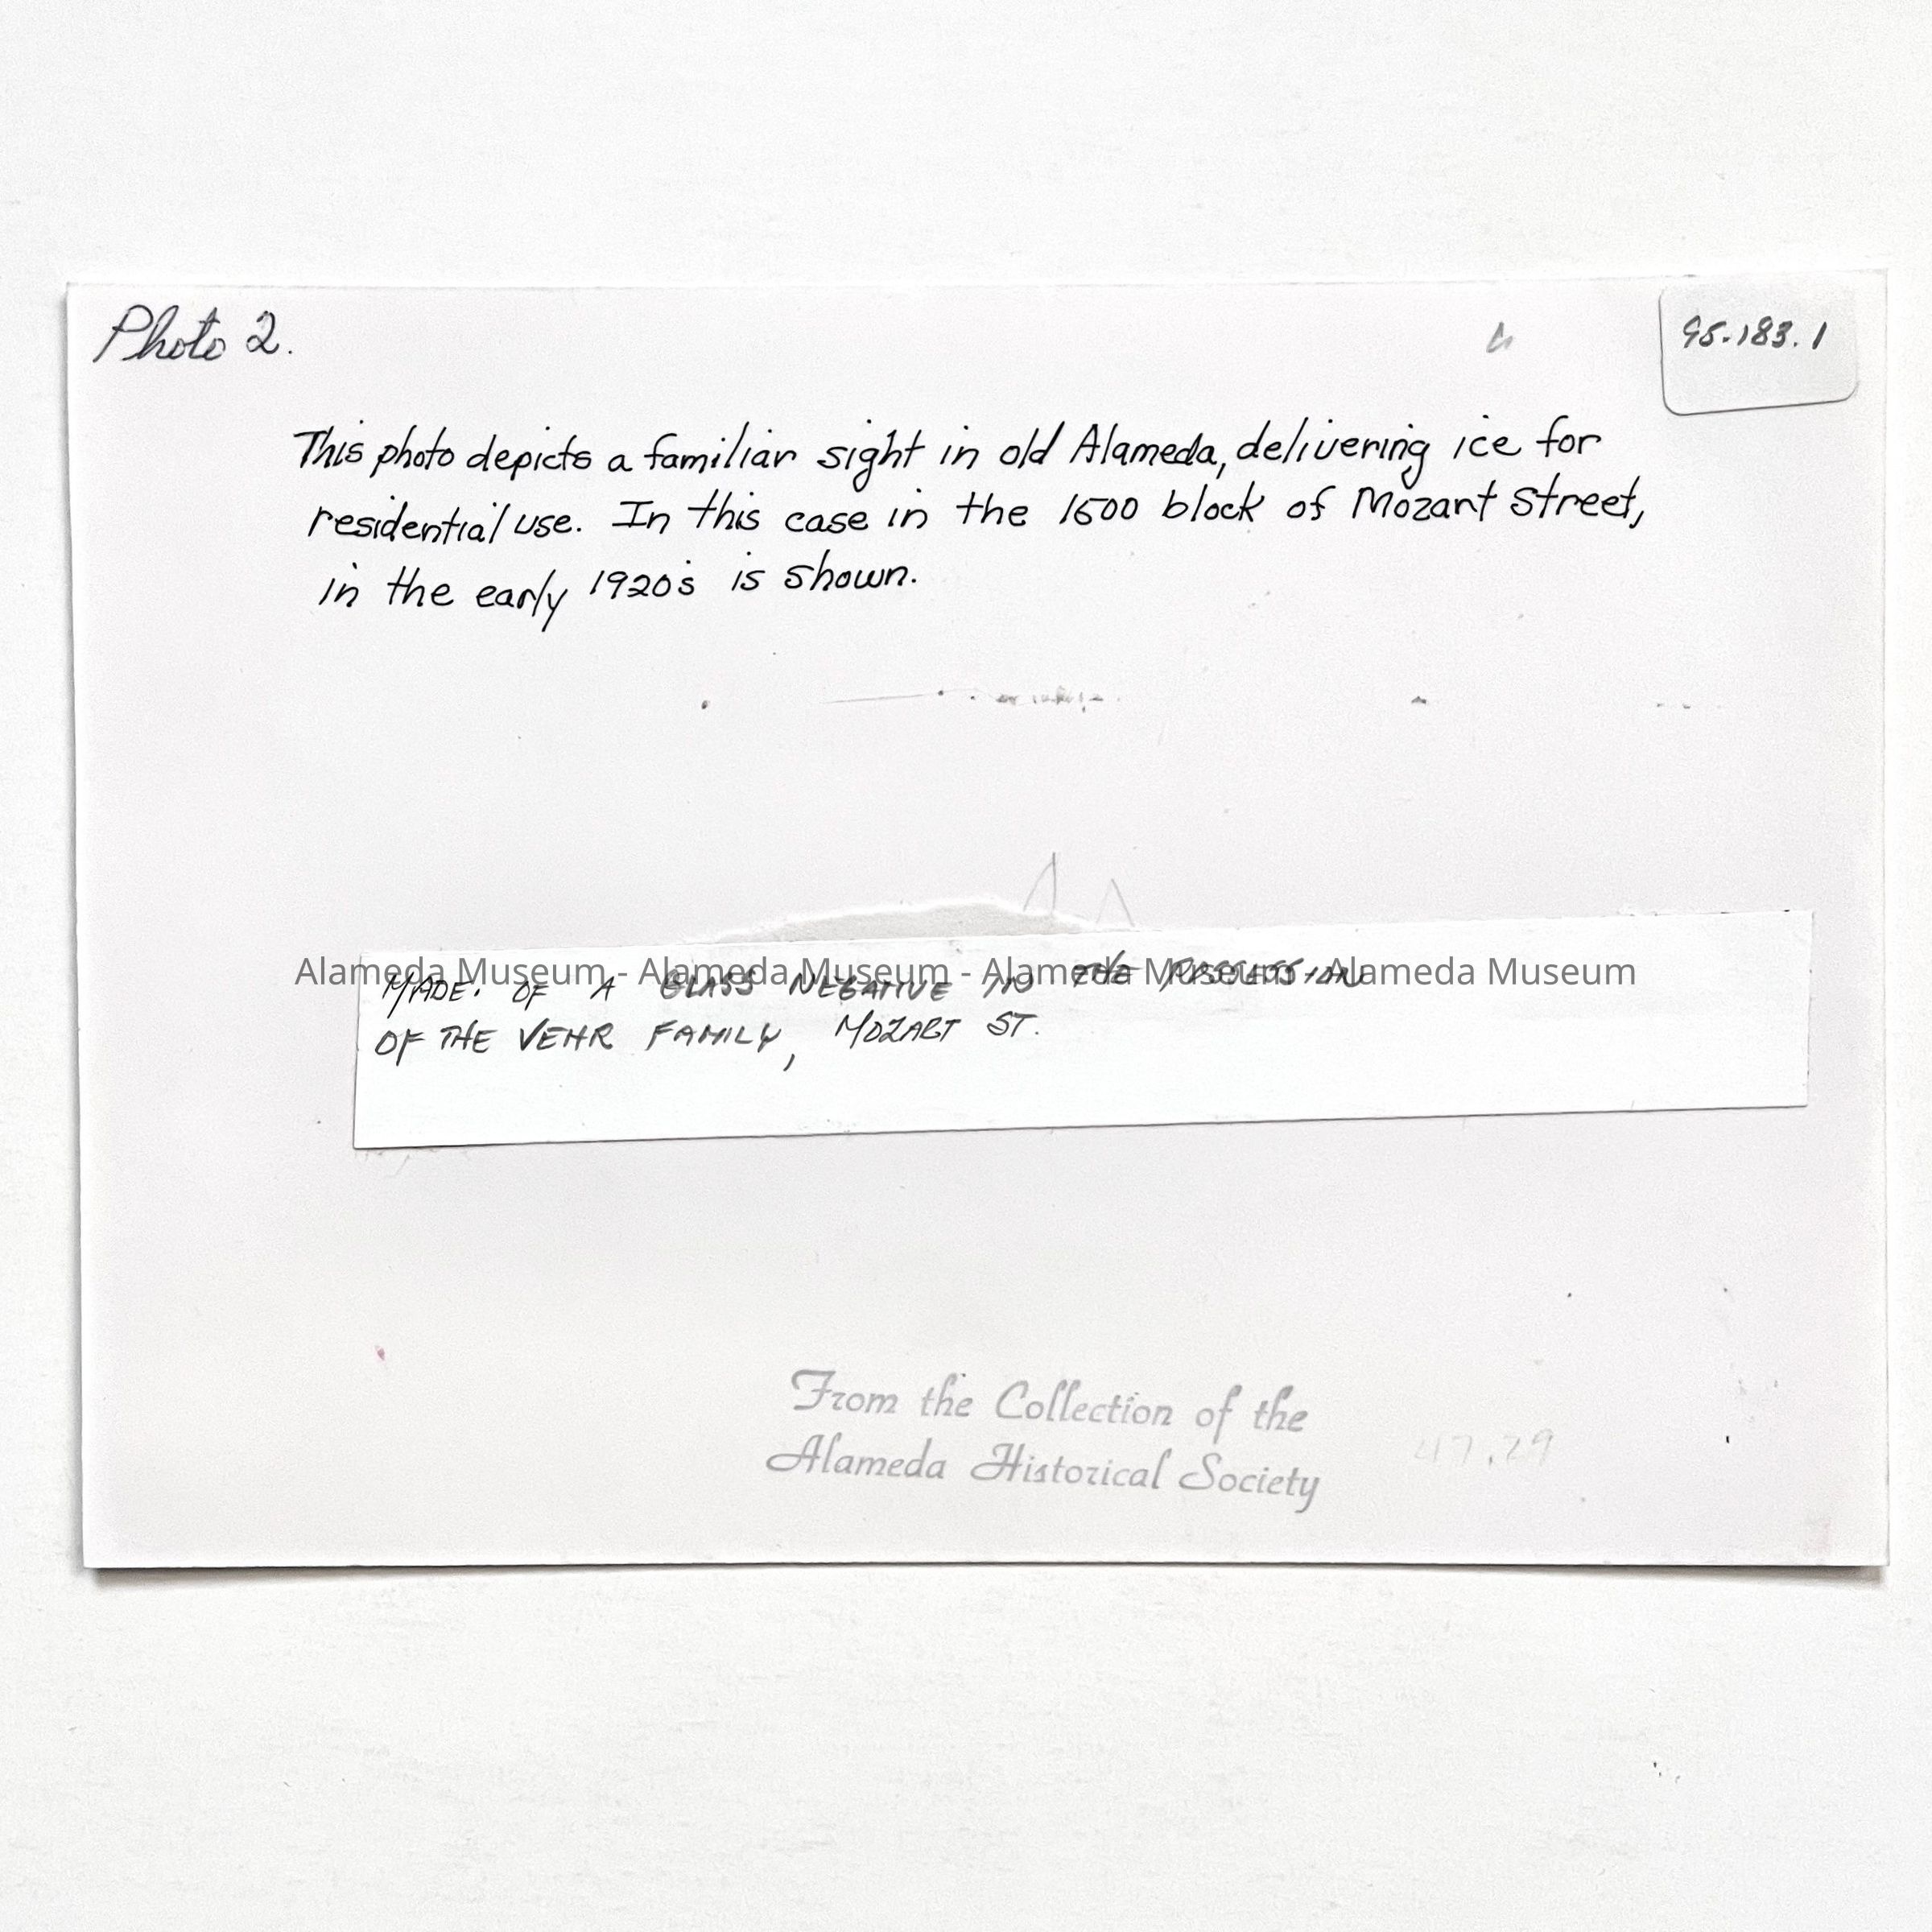 Photo 2.
95.183.1
This photo depicts a familiar sight in old Alameda, delivering ice for
residential use. In this case in the 1600 block of Mozart Street,
in the early 1920s is shown.
Alameda Museum - Alameda Museum - Alameda Museum - Alameda Museum
MADE. OF A GLASS NEGATIVE IN THE POSSESSION
OF THE VEHR FAMILY, MOZART ST.
From the Collection of the
Alameda Historical Society